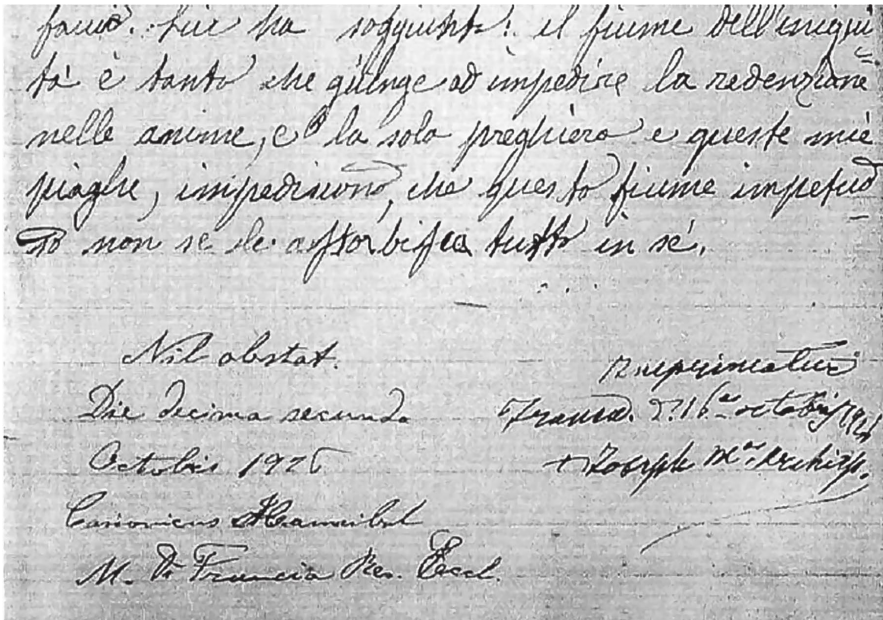 ha soggiunto: il fiume dell'iniqui=
tà è tanto che giunge ad impedire la redenzione
nelle anime, e la sola preghiera e queste mie
piaghe, impediscono, che questo fiume impetuo=
so non se le assorbisca tutto in sé.
Nil obstat.
Die decima secunda
Octobris 1926
Canonicus Hannibal
M. Di Francia Rev. Eccl.
Imprimatur
+ Joseph M.ª Archiep.